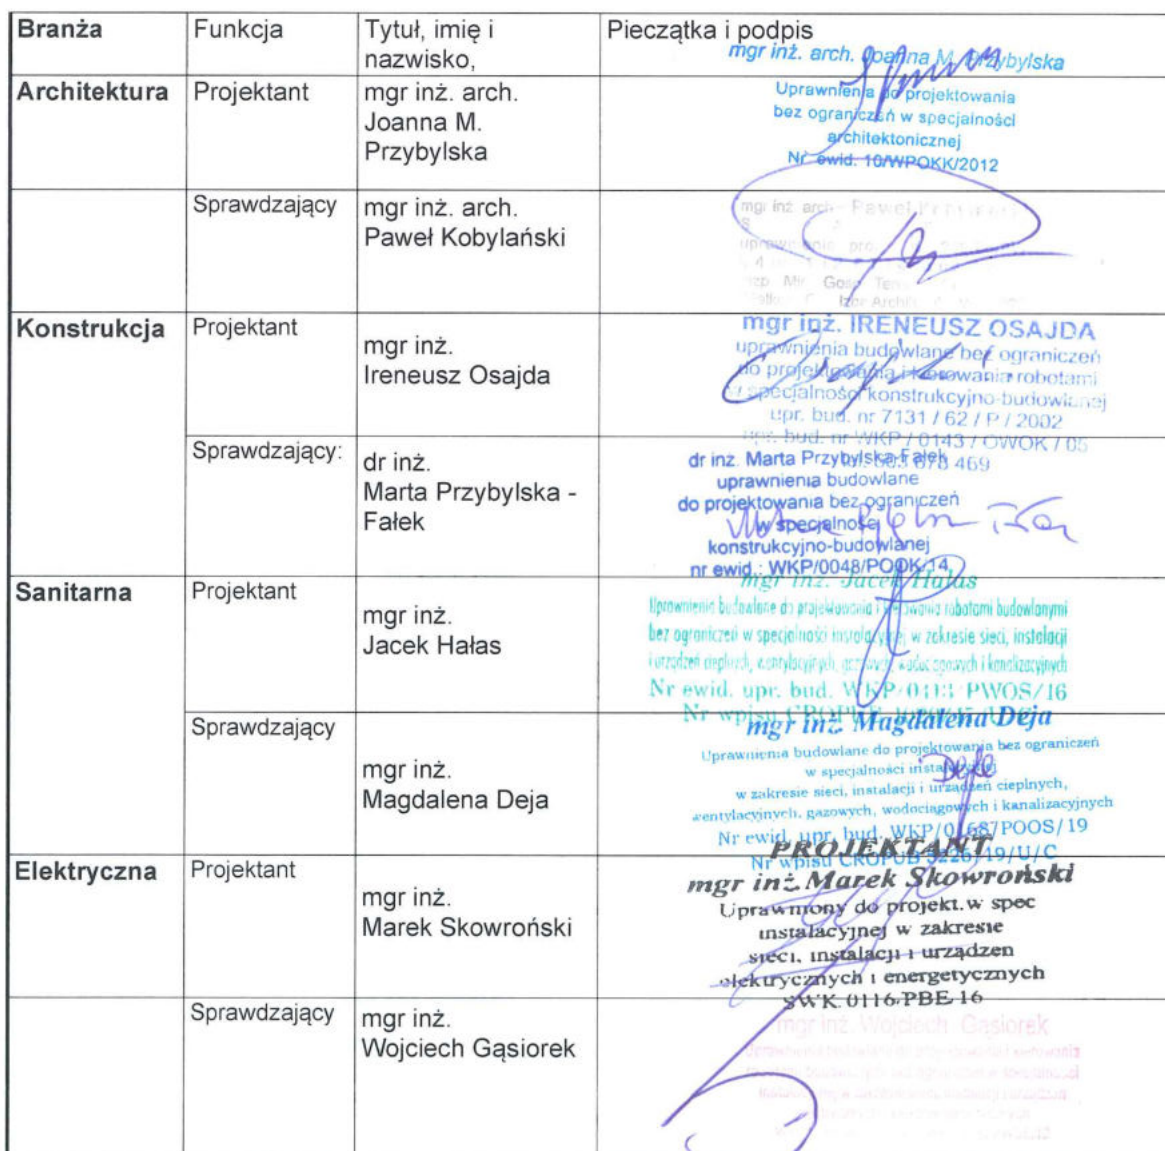 Branża Funkcja Tytuł, imię i Pieczątka i podpis
nazwisko,
mgr inż. arch. Joanna M. Przybylska
Architektura Projektant mgr inż. arch.
Joanna M.
Przybylska
Uprawnienia do projektowania
bez ograniczeń w specjalności
architektonicznej
Nr ewid. 10/WPOKK/2012
Sprawdzający mgr inż. arch.
Paweł Kobylański
mgr inż. arch. Paweł
Konstrukcja Projektant
mgr inż.
Ireneusz Osajda
mgr inż. IRENEUSZ OSAJDA
uprawnienia budowlane bez ograniczeń
do projektowania i kierowania robotami
w specjalności konstrukcyjno-budowlanej
upr. bud. nr 7131 / 62 / P / 2002
upr. bud. nr WKP / 0143 / OWOK / 05
Sprawdzający:
dr inż.
Marta Przybylska -
Fałek
dr inż. Marta Przybylska-Fałek
uprawnienia budowlane
do projektowania bez ograniczeń
w specjalności
konstrukcyjno-budowlanej
nr ewid.: WKP/0048/POOK/14
Sanitarna Projektant
mgr inż.
Jacek Hałas
mgr inż. Jacek Hałas
Uprawnienia budowlane do projektowania i kierowania robotami budowlanymi
bez ograniczeń w specjalności instalacyjnej w zakresie sieci, instalacji
i urządzeń cieplnych, wentylacyjnych, gazowych, wodociągowych i kanalizacyjnych
Nr ewid. upr. bud. WKP/0113/PWOS/16
Nr wpisu
Sprawdzający
mgr inż.
Magdalena Deja
mgr inż. Magdalena Deja
Uprawnienia budowlane do projektowania bez ograniczeń
w specjalności instalacyjnej
w zakresie sieci, instalacji i urządzeń cieplnych,
wentylacyjnych, gazowych, wodociągowych i kanalizacyjnych
Nr ewid. upr. bud. WKP/0168/POOS/19
Nr wpisu CROPUB 5226/19/U/C
Elektryczna Projektant
mgr inż.
Marek Skowroński
PROJEKTANT
mgr inż. Marek Skowroński
Uprawniony do projekt. w spec
instalacyjnej w zakresie
sieci, instalacji i urządzen
elektrycznych i energetycznych
SWK 0116 PBE 16
Sprawdzający mgr inż.
Wojciech Gąsiorek
mgr inż. Wojciech Gąsiorek